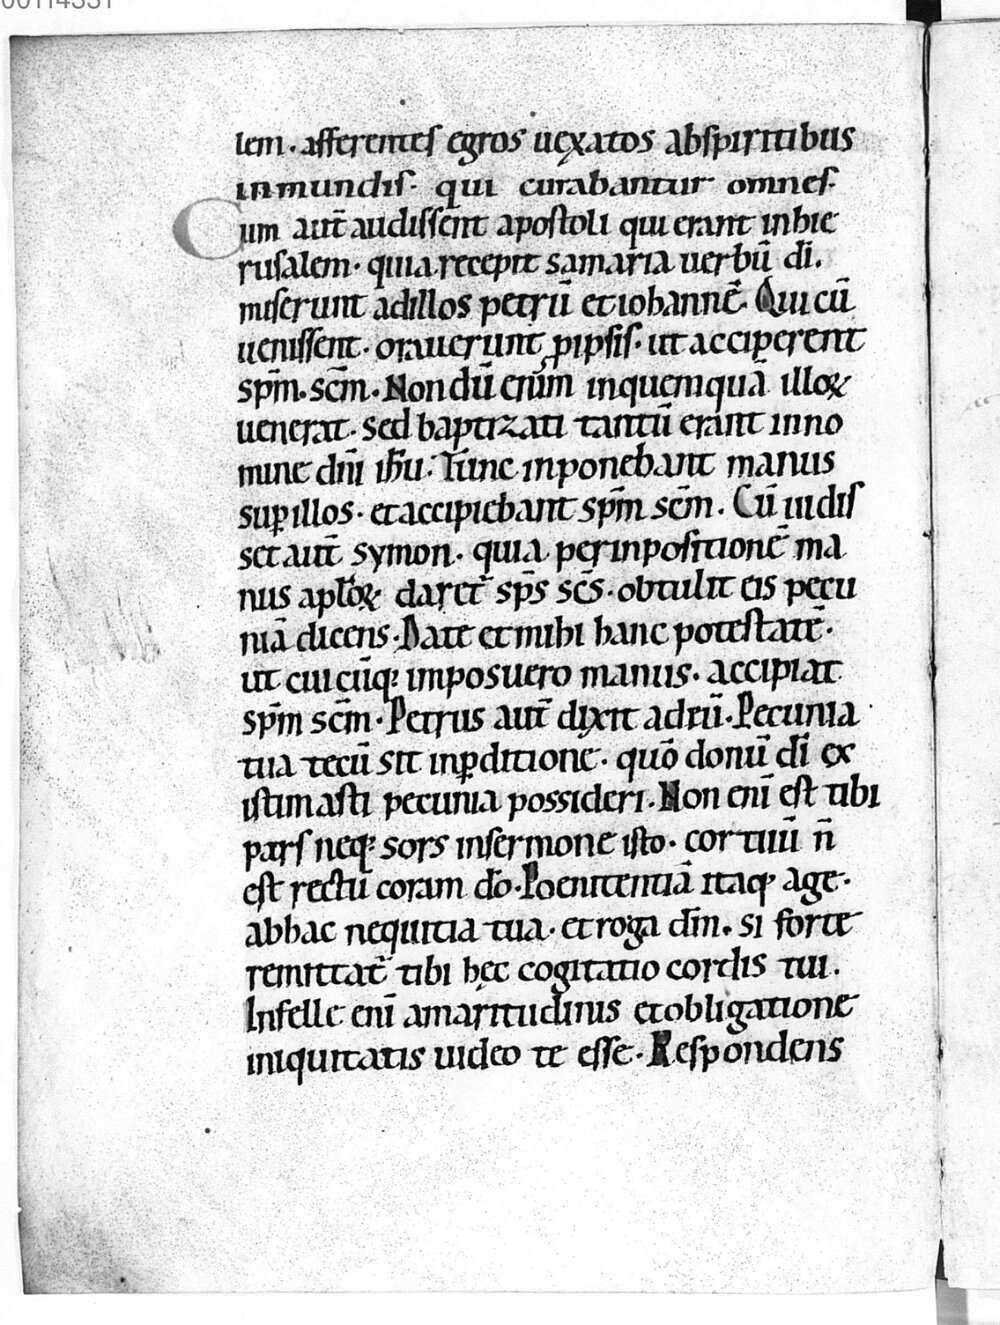 00114331
lem · afferentes egros uexatos abspiritibus
inmundis · qui curabantur omnes ·
Cum aut̄ audissent apostoli qui erant inhie
rusalem · quia recepit samaria uerbū dī .
miserunt adillos petrū et iohannē · Qui cū
uenissent · orauerunt ꝓ ipsis · ut acciperent
spm̄ · scm̄ · Non dū enim inquemquā illoꝝ
uenerat · sed baptizati tantū erant inno
mine dn̄i ih̄u · Tunc inponebant manus
suꝑ illos · et accipiebant spm̄ scm̄ . Cū uidis
set aut̄ symon · quia per inpositionē ma
nus apl̄oꝝ daret̄ sp̄s sc̄s · obtulit eis pecu
niā dicens · Date et mihi hanc potestatē ·
ut cuicūq; imposuero manus · accipiat
spm̄ scm̄ · Petrus aut̄ dixit ad eū · Pecunia
tua tecū sit inꝑditione · quō donū dī ex
istimasti pecunia possideri . Non enī est tibi
pars neq; sors insermone isto · cor tuū n̄
est rectū coram dō · Poenitentiā itaq; age ·
abhac nequitia tua · et roga dm̄ . si forte
remittat̄ tibi hęc cogitatio cordis tui .
Infelle enī amaritudinis et obligatione
iniquitatis uideo te esse · Respondens